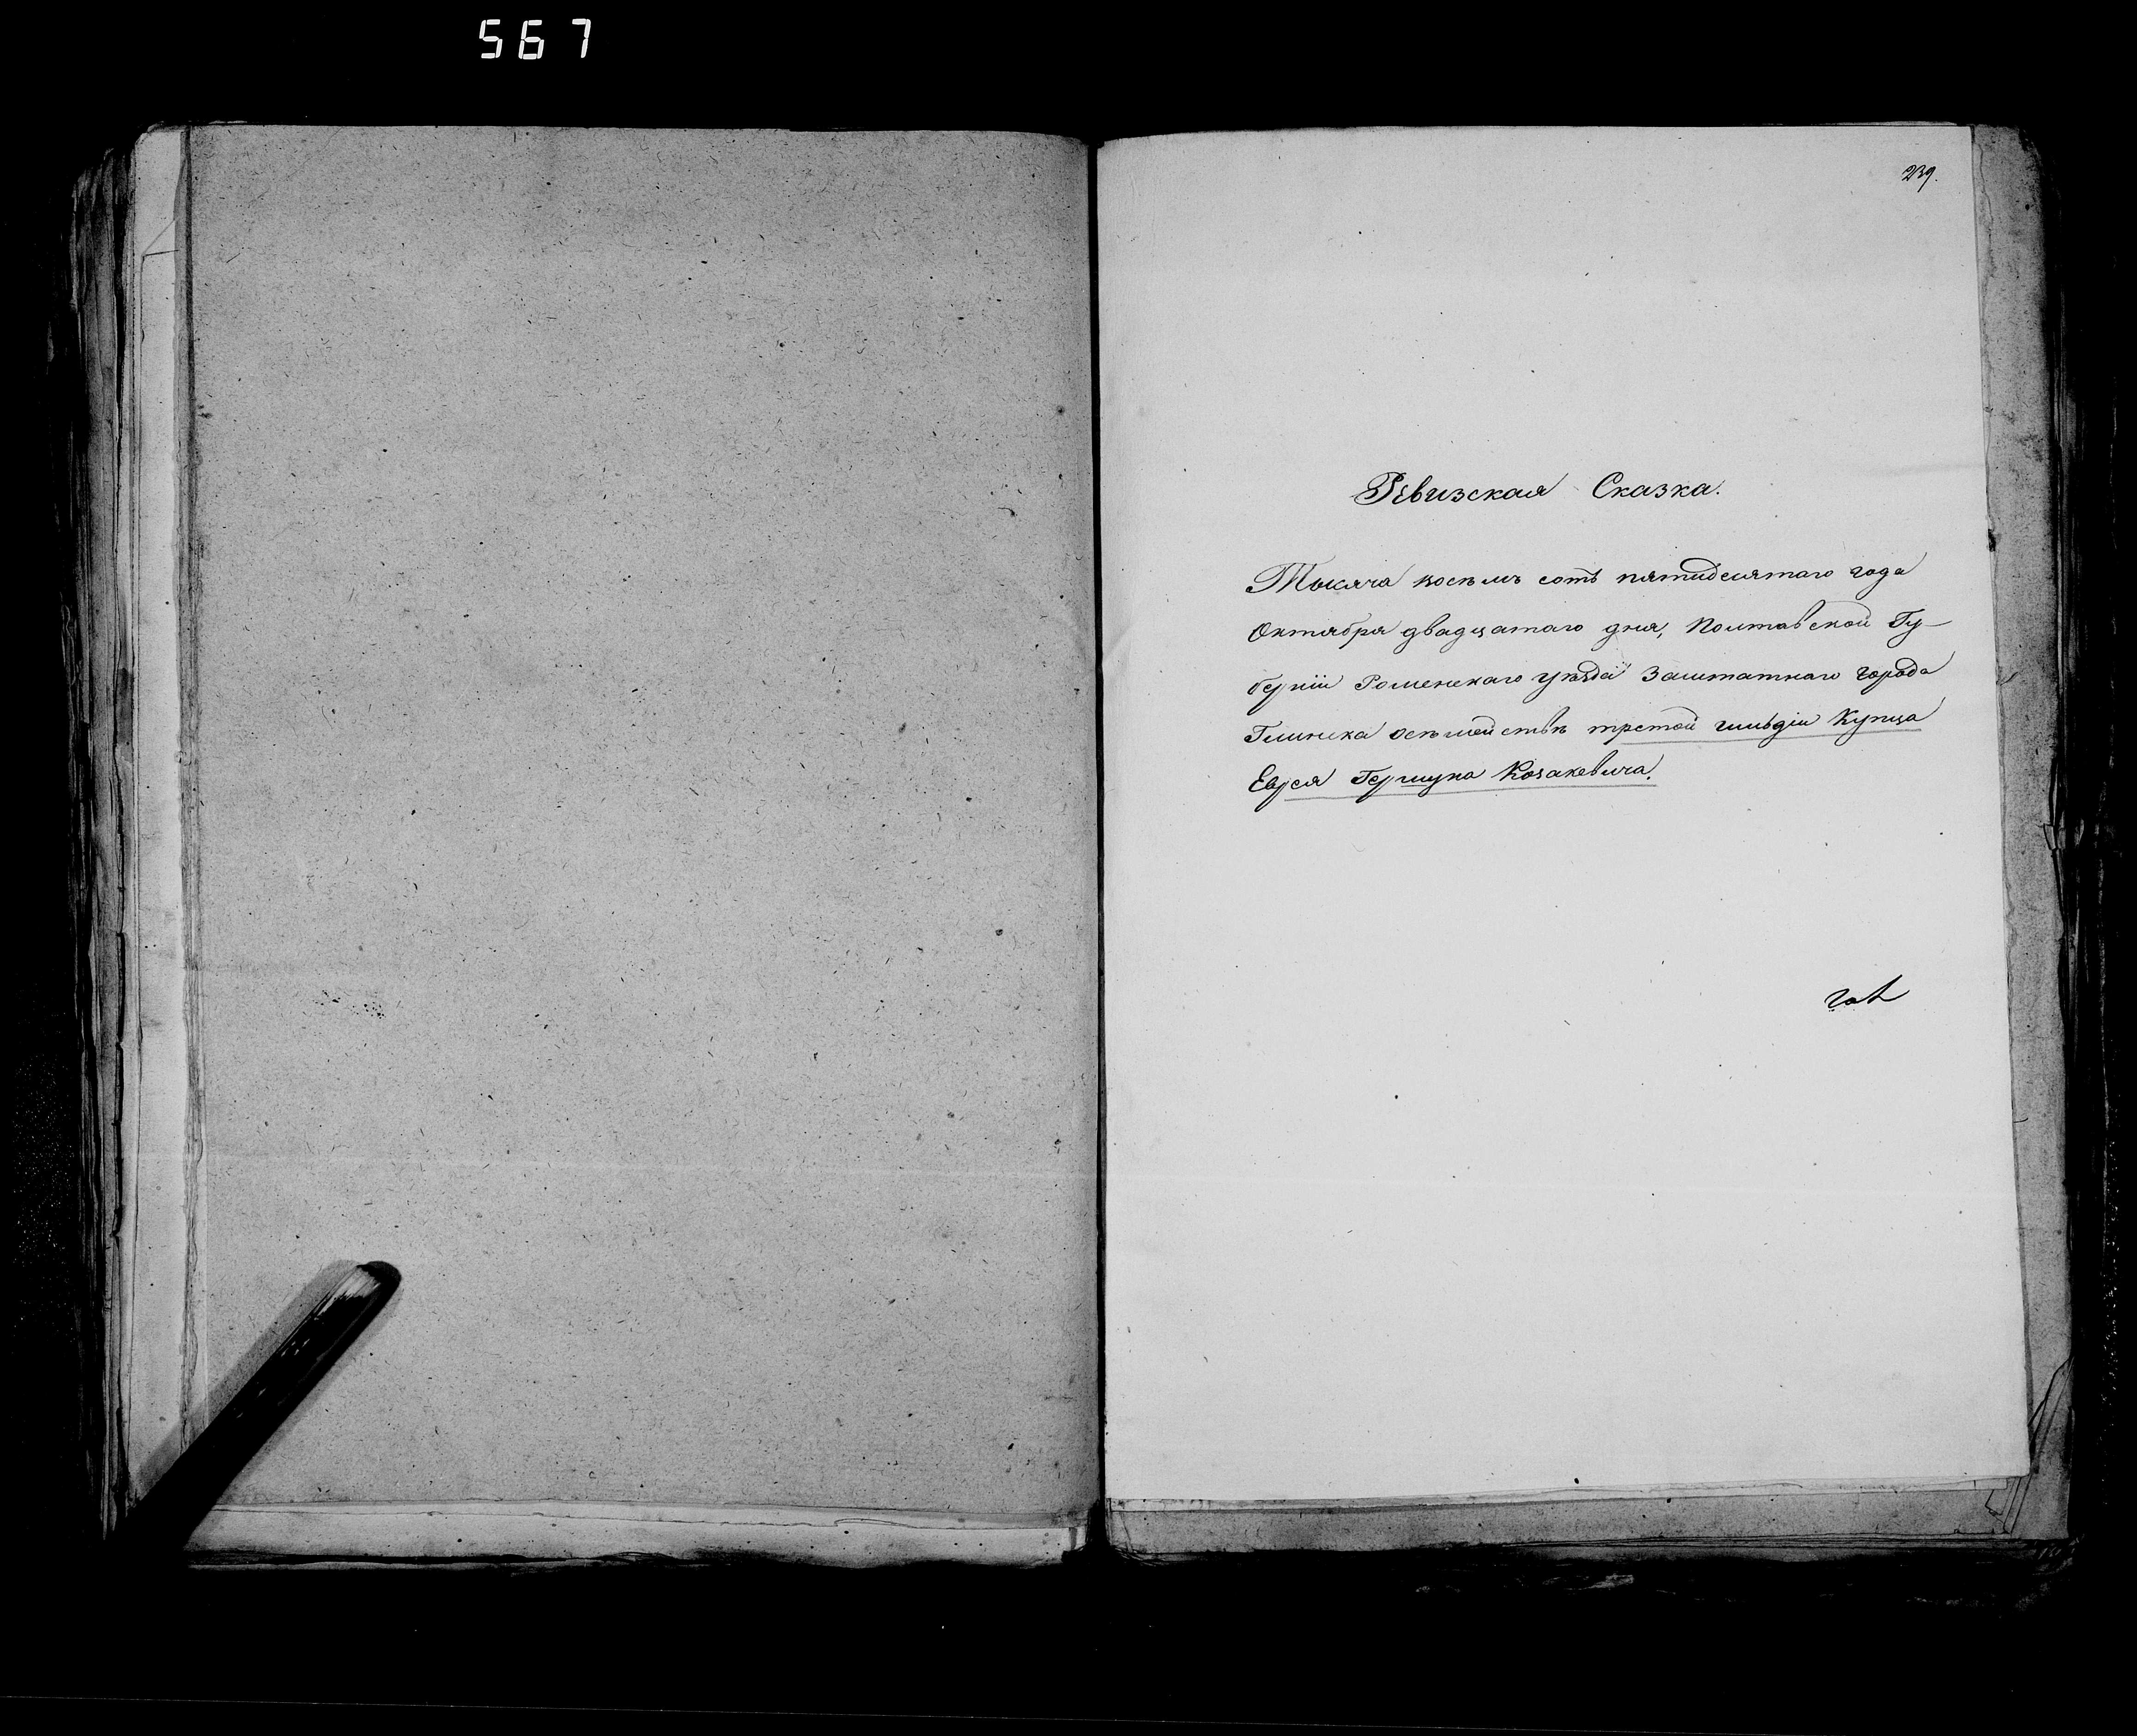 567
239.
Ревизская Сказка.
Тысяча восемь сотъ пятидесятаго года
Октября двадцатаго дня, Полтавской Гу-
берніи Роменскаго уѣзда Заштатнаго города
Глинска о семействѣ третой гильдіи Купца
Еврея Гершуна Козакевича.